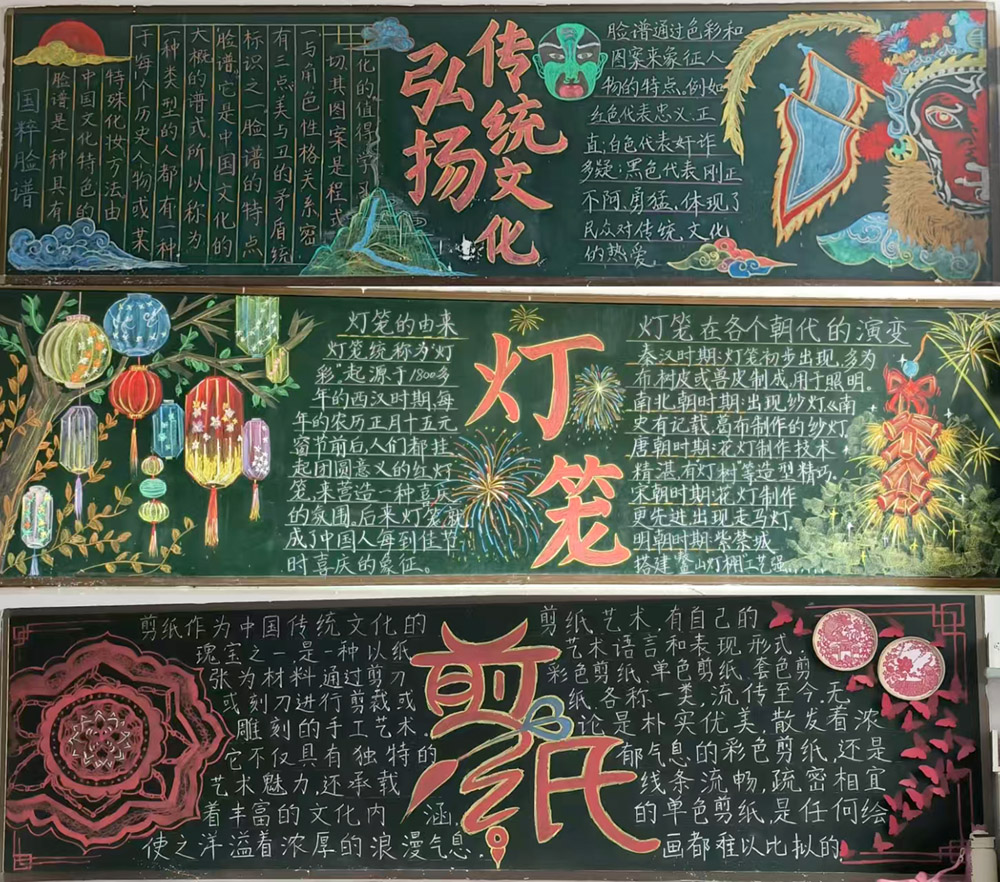 国粹脸谱
脸谱是一种具有
中国文化特色的
特殊化妆方法由
于每个历史人物或某
一种类型的人都有一种
大概的谱式所以称为
脸谱。它是中国文化的
标识之一脸谱的特点
有三点美与丑的矛盾统
一与角色性格关系密
切其图案是程式
化的值得学
弘扬
传统文化
脸谱通过色彩和
图案来象征人
物的特点。例如
红色代表忠义、正
直;白色代表奸诈
多疑;黑色代表刚正
不阿、勇猛、体现了
民众对传统文化
的热爱。
灯笼的由来
灯笼统称为"灯
彩"起源于1800多
年的西汉时期,每
年的农历正月十五元
宵节前后,人们都挂
起团圆意义的红灯
笼,来营造一种喜庆
的氛围,后来灯笼就
成了中国人每到佳节
时喜庆的象征。
灯笼
灯笼在各个朝代的演变
秦汉时期:灯笼初步出现,多为
布树皮或兽皮制成,用于照明。
南北朝时期:出现纱灯《南
史有记载葛布制作的纱灯
唐朝时期:花灯制作技术
精湛有灯树"等造型精巧,
宋朝时期:花灯制作
更先进出现走马灯
明朝时期:紫禁城
搭建鳌山灯棚工艺强......
剪纸作为中国传统文化的
瑰宝之一是一种以纸
张为材料通过剪刀
或刻刀进行剪裁或
雕刻的手工艺术.
它不仅具有独特的
艺术魅力,还承载
着丰富的文化内涵,
使之洋溢着浓厚的浪漫气息.
剪纸
剪纸艺术,有自己的
艺术语言和表现形式.
彩色剪纸、单色剪纸、套色剪
纸、各称一类,流传至今,无
论是朴实优美散发着浓
郁气息的彩色剪纸,还是
线条流畅,疏密相宜
的单色剪纸,是任何绘
画都难以比拟的.